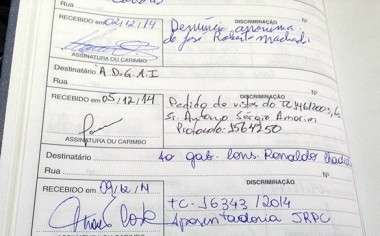 RECEBIDO EM 04/12/14 DISCRIMINAÇÃO
Denúncia anônima
de José Roberto
ASSINATURA OU CARIMBO
Destinatário A.D.G.A.I
Rua
RECEBIDO EM 05/12/14 DISCRIMINAÇÃO
Pedido de vistas do
Sr. Antonio Sérgio Amorim
Protocolo: 1564250
ASSINATURA OU CARIMBO
Destinatário Ao gab. Cons. Ronaldo
Rua
RECEBIDO EM 09/12/14 DISCRIMINAÇÃO
TC-16343/2014
Aposentadoria JRPC
ASSINATURA OU CARIMBO